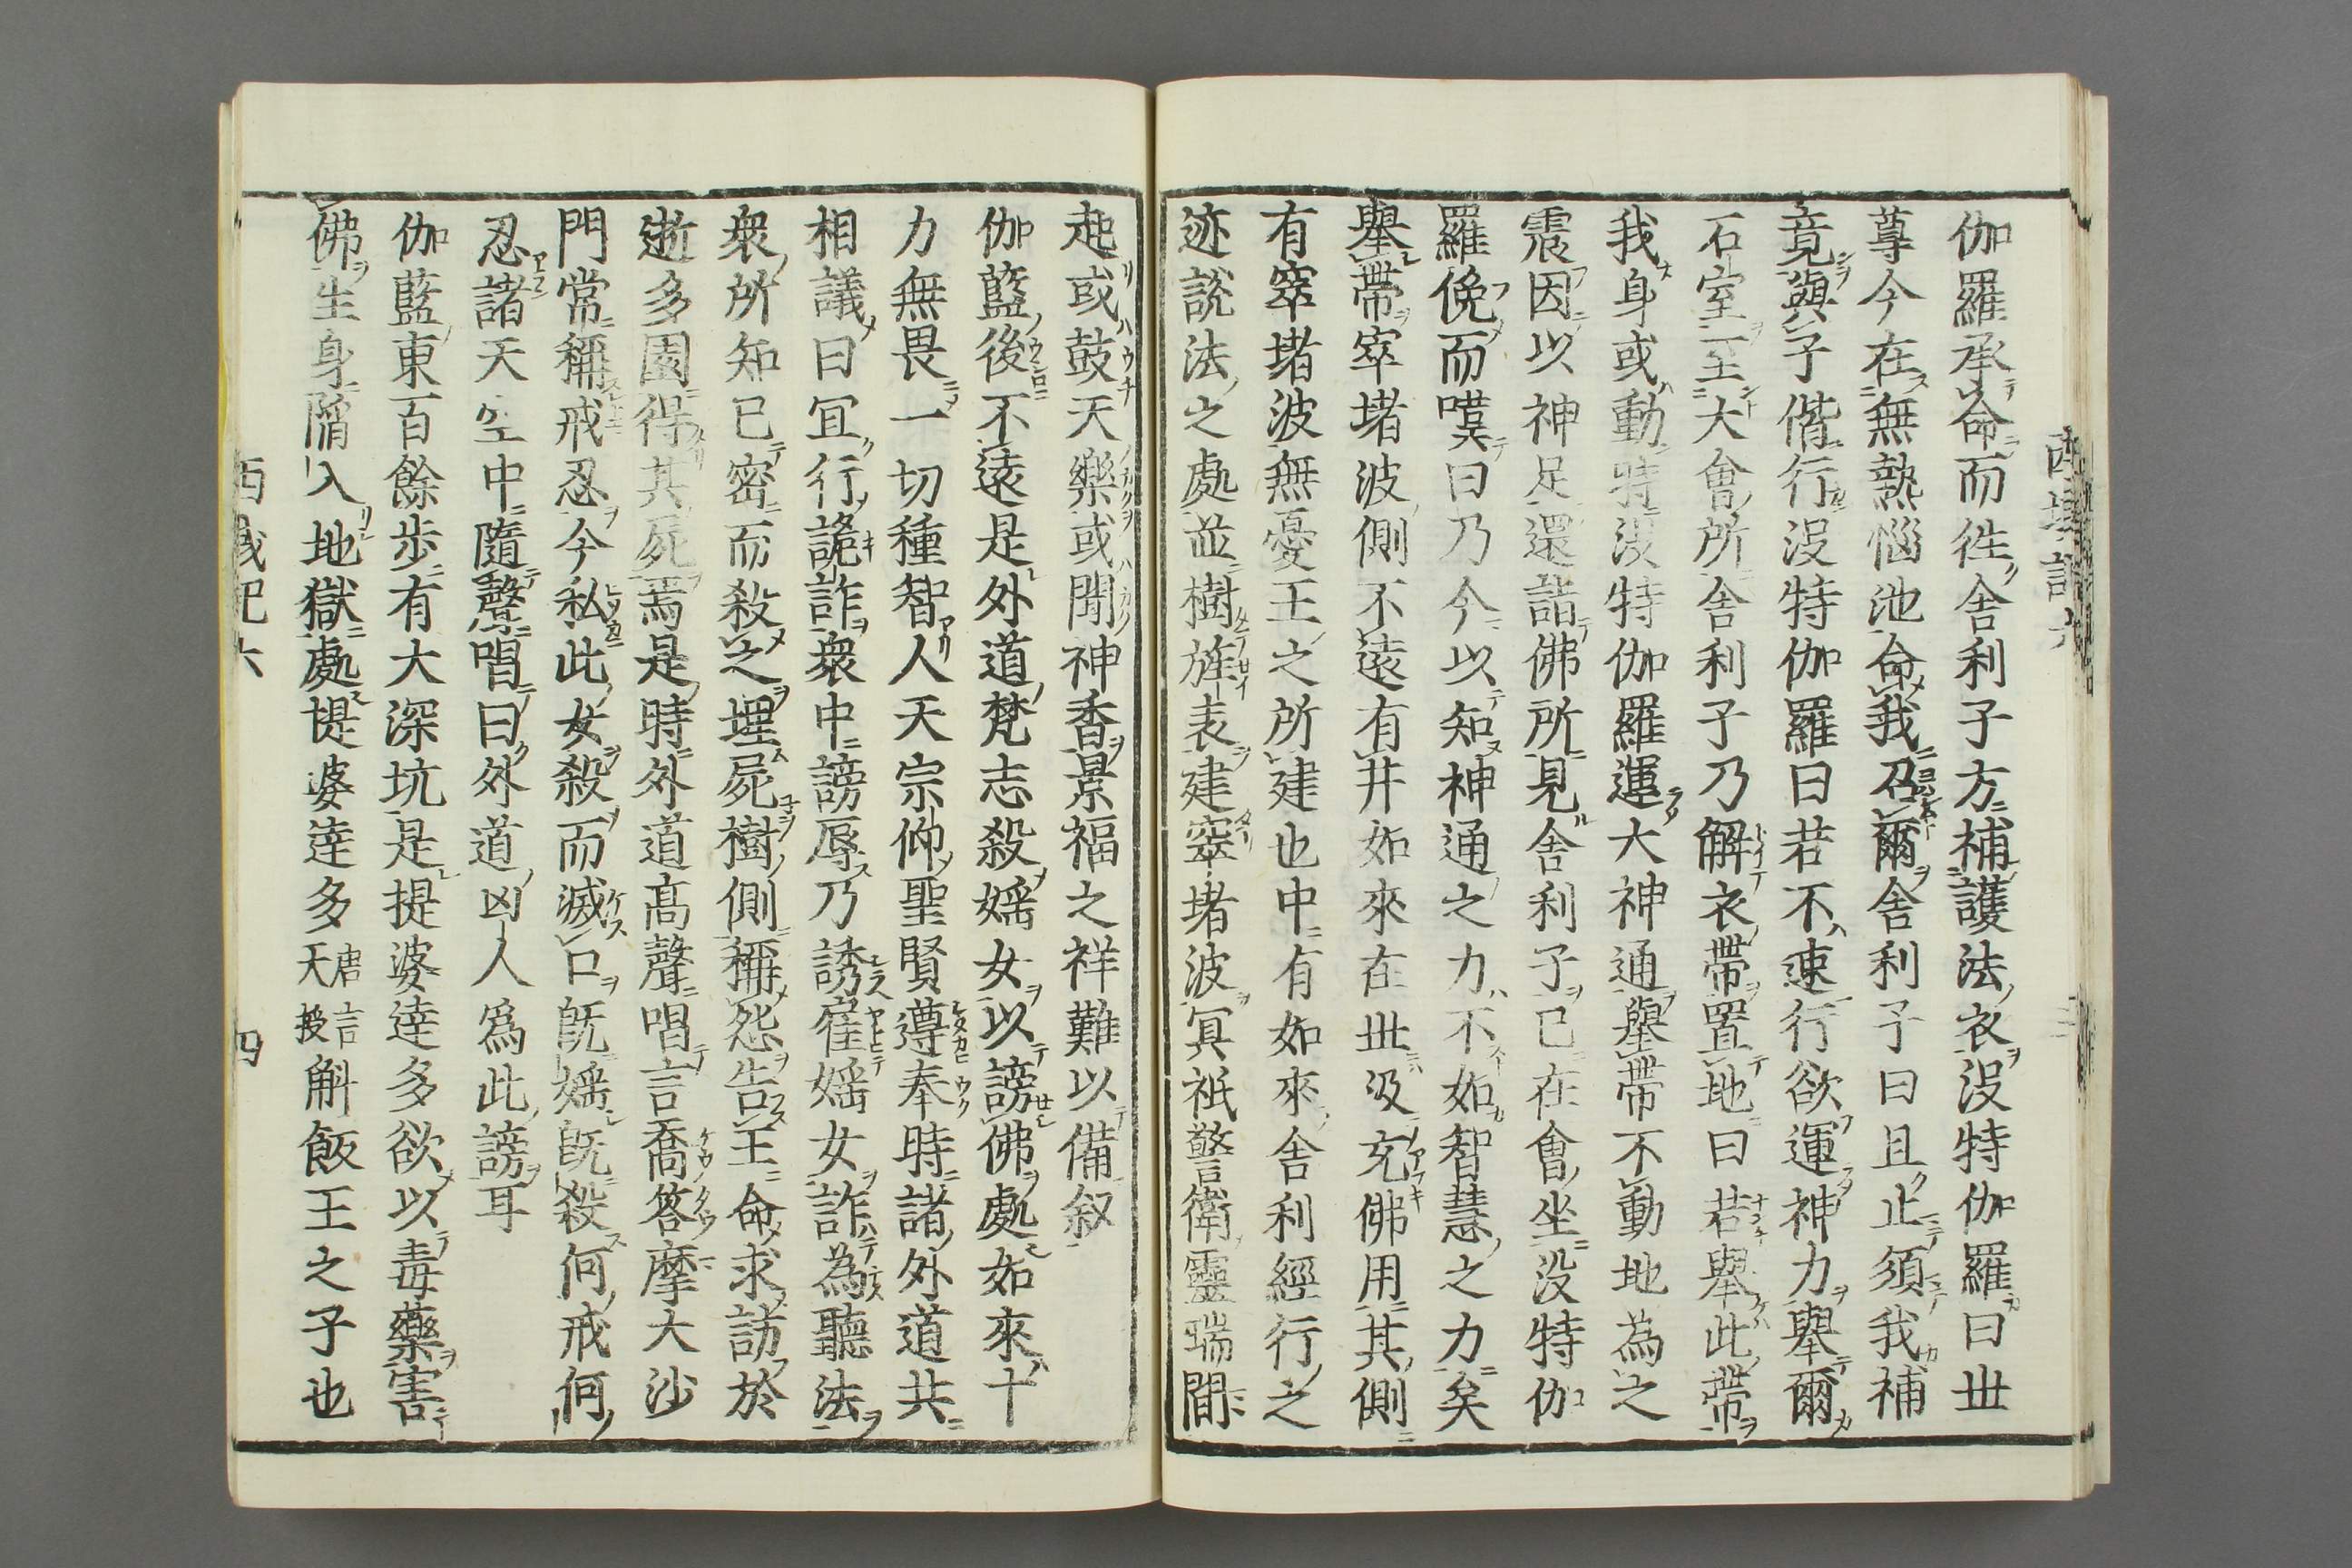 伽羅承命而徃舎利子方補護法衣没特伽羅曰丗
尊今在無熱惱池命我召爾舎利子曰且止須我補
竟與子偕行没特伽羅曰若不速行欲運神力舉爾
石室至大會所舎利子乃解衣帶置地曰若舉此帶
我身或動時没特伽羅運大神通舉帶不動地為之
震因以神足還詣佛所見舎利子已在會坐没特伽
羅俛而嘆曰乃今以知神通之力不如智慧之力矣
舉帶窣堵波側不遠有井如來在丗汲充佛用其側
有窣堵波無憂王之所建也中有如來舎利經行之
迹說法之處並樹旌表建窣堵波冥祇警衛靈瑞間
起或鼓天樂或聞神香景福之祥難以備叙
伽藍後不遠是外道梵志殺婬女以謗佛處如來十
力無畏一切種智人天宗仰聖賢遵奉時諸外道共
相議曰冝行詭詐衆中謗辱乃誘雇婬女詐為聽法
衆所知已密而殺之埋屍樹側稱怨告王王命求訪於
逝多園得其屍焉是時外道髙聲唱言喬答摩大沙
門常稱戒忍今私此女殺而滅口旣婬旣殺何戒何
忍諸天空中隨聲唱曰外道凶人為此謗耳
伽藍東百餘歩有大深坑是提婆達多欲以毒藥害
佛生身陷入地獄處提婆達多唐言天授斛飯王之子也
西域記六
四